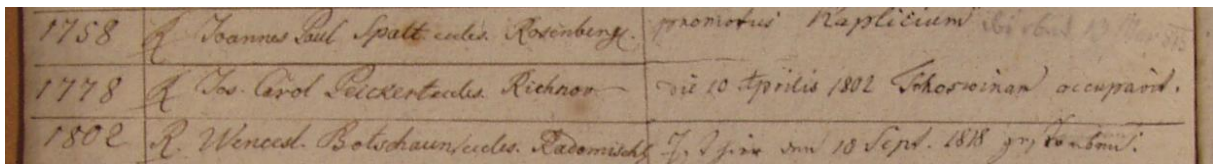 1758 R Joannes Paul Spatt eccles. Rosenberg. promotus Kaplicium
1778 R Jos. Carol Peickert eccles. Richnov die 10 Aprilis 1802 occupavit.
1802 R. Wencesl. Botschaun eccles. Radomischl hier den 10 Sept. 1818 gestorben.